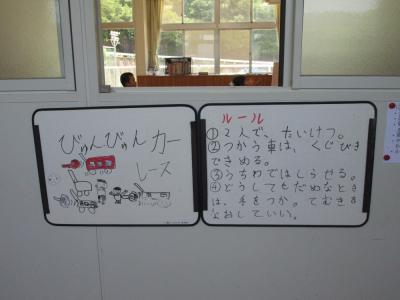 びゅんびゅんカー
レース
ルール
①2人で、たいけつ。
②つかう車は、くじびき
できめる。
③うちわではしらせる。
④どうしてもだめなとき
は、手をつか。てむきを
なおしていい。